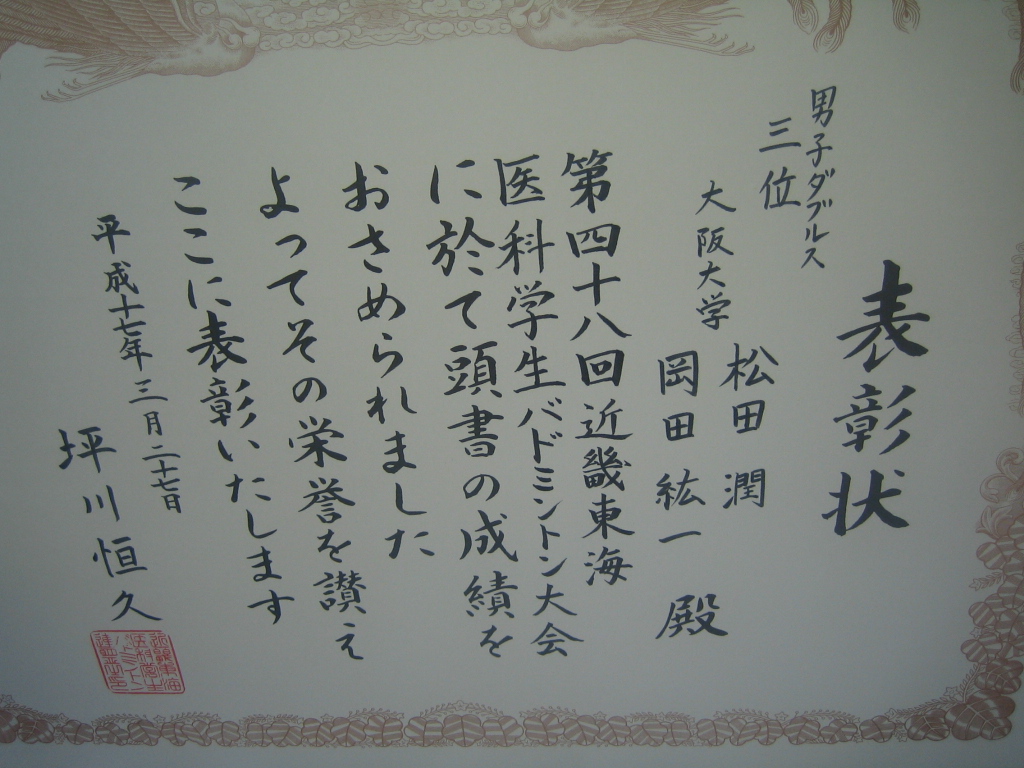 表彰状
男子ダブルス
三位
大阪大学
松田 潤
岡田 紘一 殿
第四十八回近畿東海
医科学生バドミントン大会
に於て頭書の成績を
おさめられました
よってその栄誉を讃え
ここに表彰いたします
平成十七年三月二十七日
坪川恒久